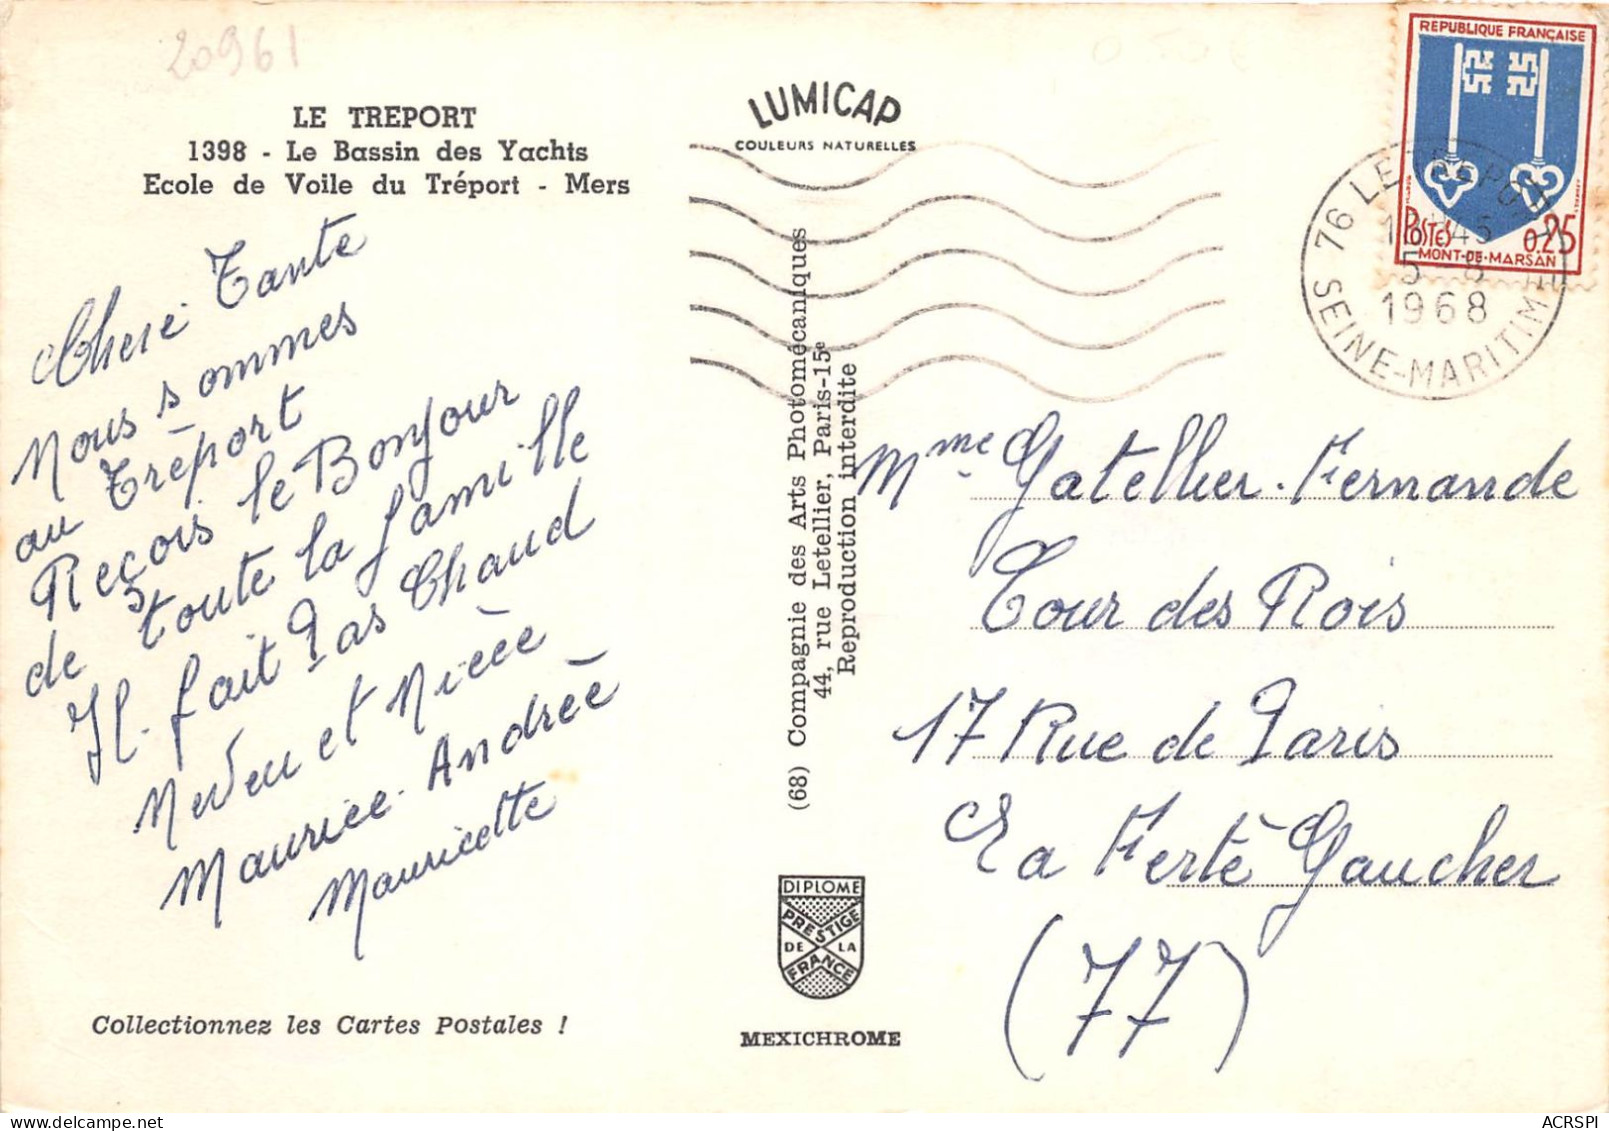 20961
LE TREPORT
1398 - Le Bassin des Yachts
Ecole de Voile du Tréport - Mers
Cheré Tante
Nous sommes
au Tréport
Reçois le Bonjour
de toute la famille
Il fait pas Chaud
Neveu et Nièce
Maurice. Andrée
Mauricette
Collectionnez les Cartes Postales !
LUMICAP
COULEURS NATURELLES
(68) Compagnie des Arts Photomécaniques
44, rue Letellier, Paris-15e
Reproduction interdite
DIPLOME
PRESTIGE
DE LA
FRANCE
MEXICHROME
REPUBLIQUE FRANÇAISE
POSTES 0.25
MONT-DE-MARSAN
76 LE TREPORT
18H45
5-8
1968
SEINE-MARITIME
Mme Gatellier. Fernande
Cour des Rois
17 Rue de Paris
La Ferté Gaucher
(77)
ACRSPI